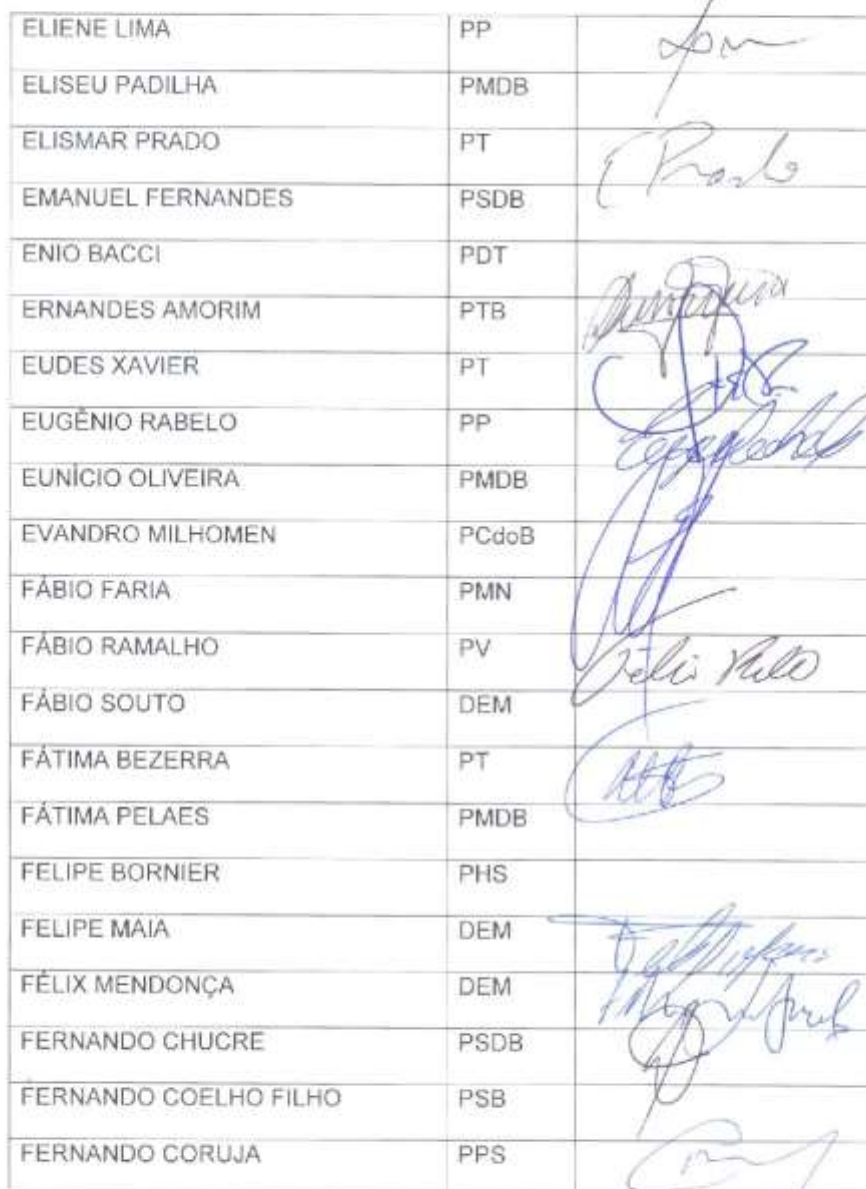 ELIENE LIMA PP
ELISEU PADILHA PMDB
ELISMAR PRADO PT
EMANUEL FERNANDES PSDB
ENIO BACCI PDT
ERNANDES AMORIM PTB
EUDES XAVIER PT
EUGÊNIO RABELO PP
EUNÍCIO OLIVEIRA PMDB
EVANDRO MILHOMEN PCdoB
FÁBIO FARIA PMN
FÁBIO RAMALHO PV
FÁBIO SOUTO DEM
FÁTIMA BEZERRA PT
FÁTIMA PELAES PMDB
FELIPE BORNIER PHS
FELIPE MAIA DEM
FÉLIX MENDONÇA DEM
FERNANDO CHUCRE PSDB
FERNANDO COELHO FILHO PSB
FERNANDO CORUJA PPS